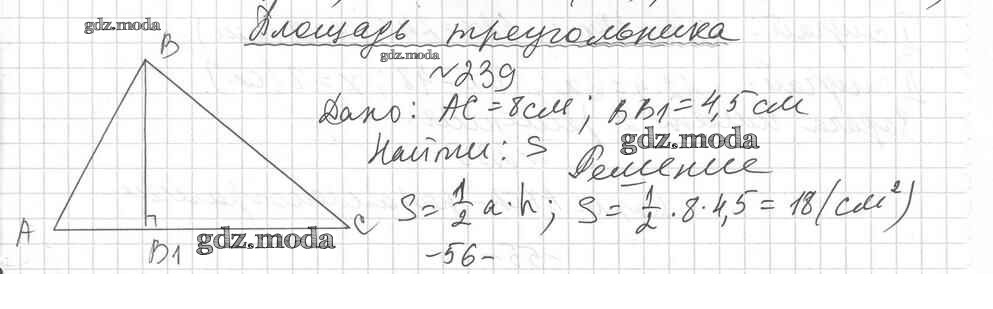 gdz.moda
Площадь треугольника
gdz.moda
№239
Дано: AC = 8см; BB1 = 4,5 см
gdz.moda
Найти: S
Решение
S = 1/2 a · h; S = 1/2 · 8 · 4,5 = 18 (см²)
B
A
B1
C
gdz.moda
-56-